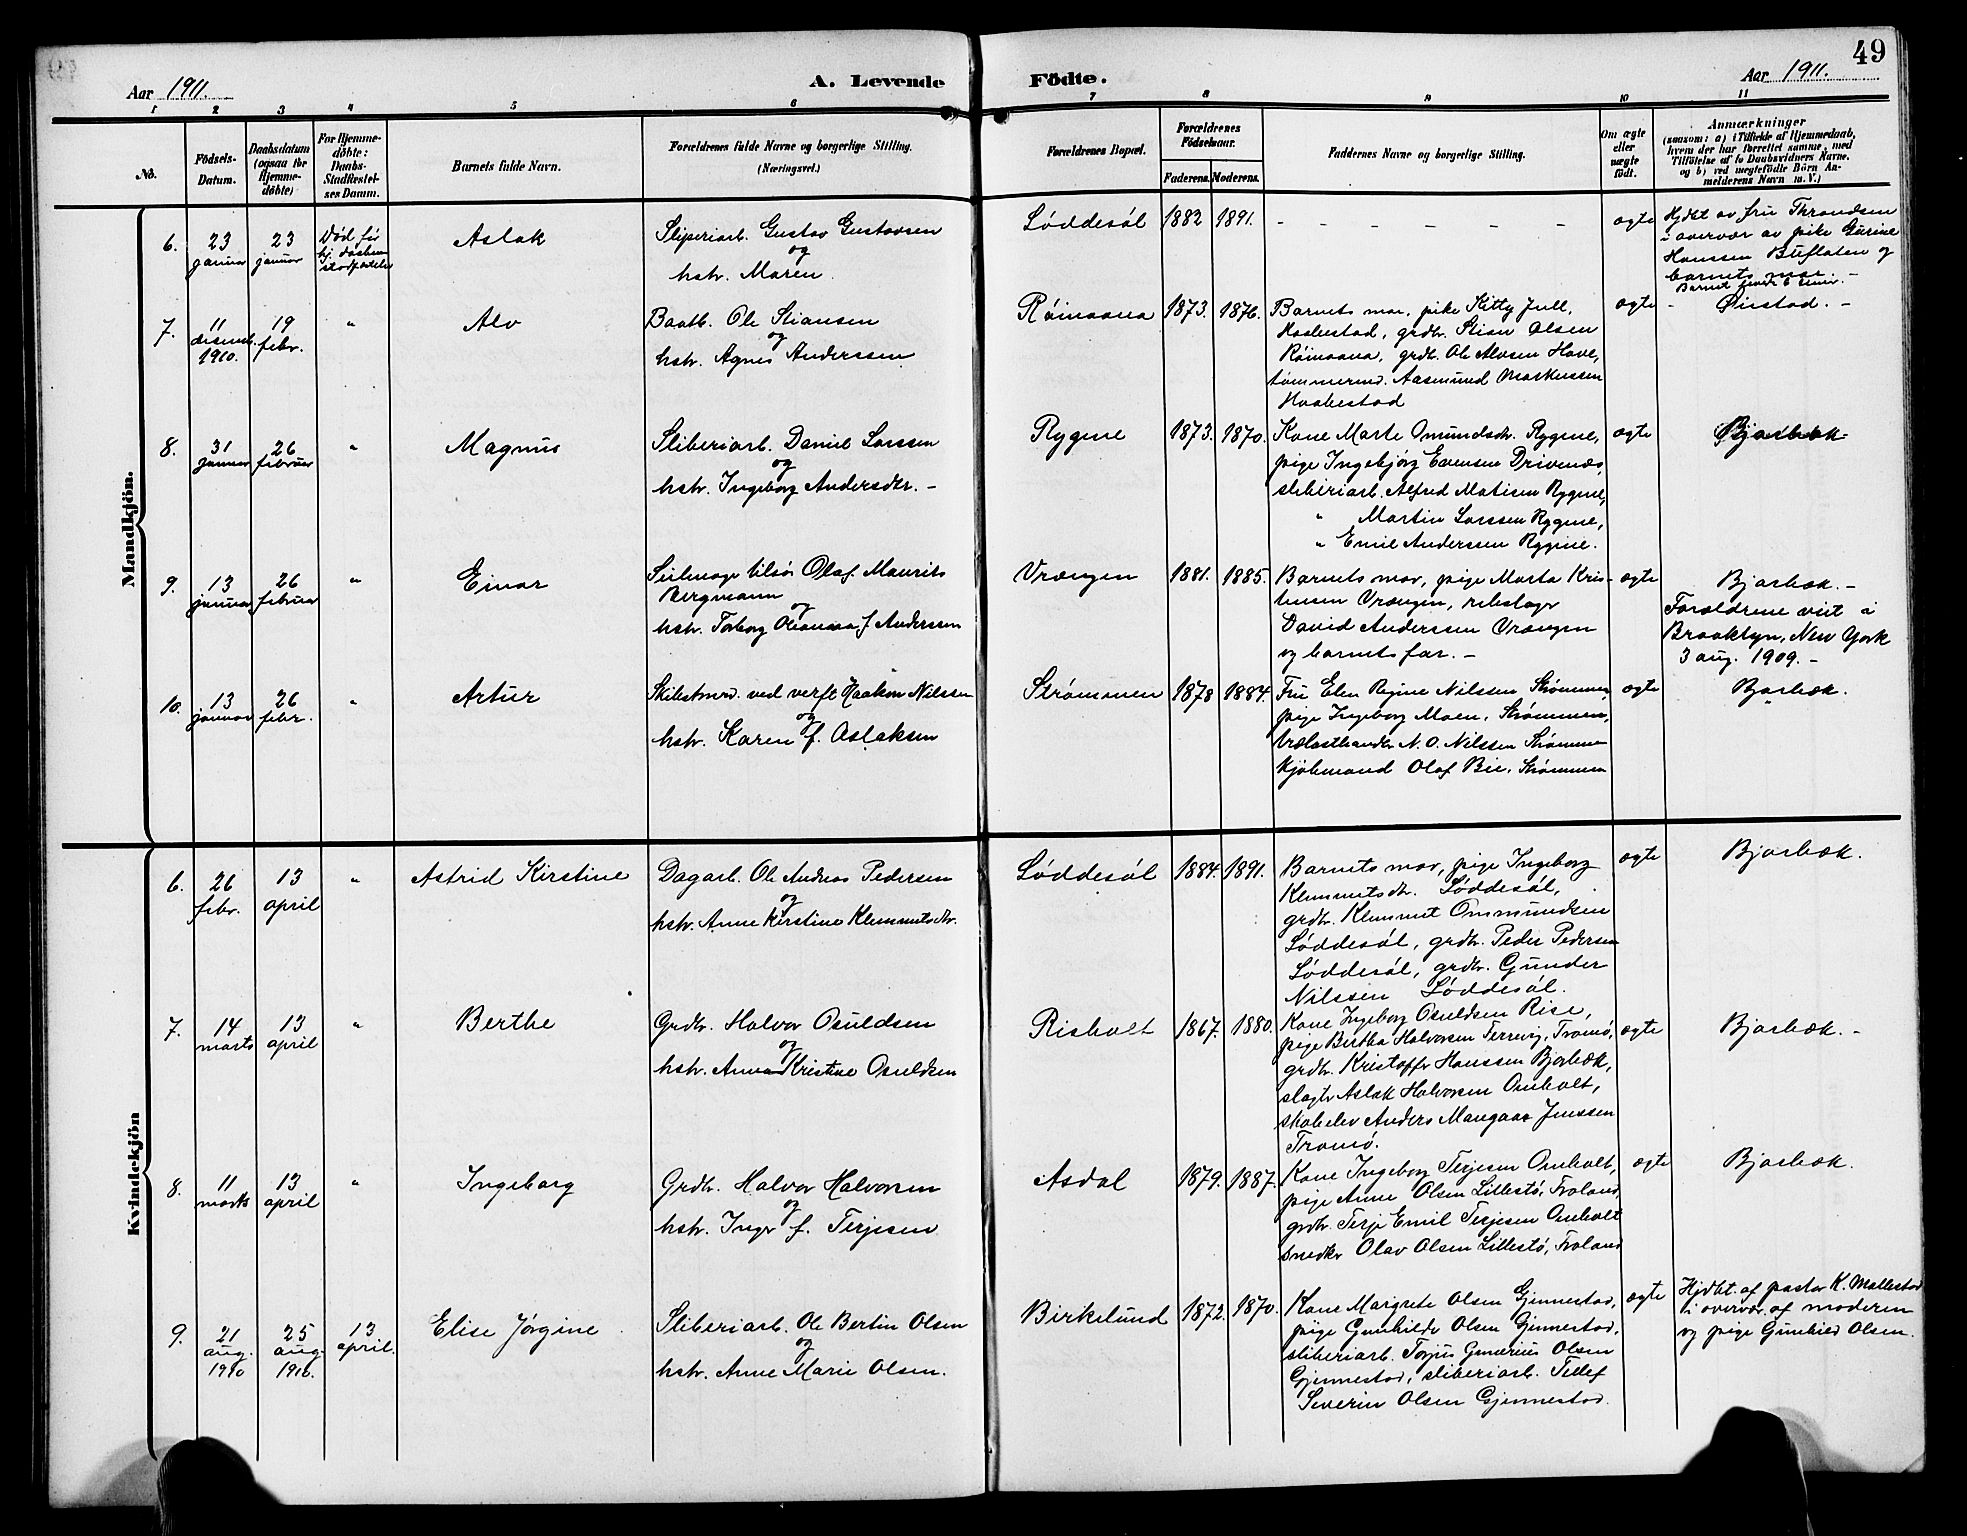 49
Aar 1911.
A. Levende Födte.
Aar 1911.
1 2 3 4 5 6 7 8 9 10 11
No.
Födsels-
Datum.
Daabsdatum
(ogsaa for
Hjemme-
döbte)
For Hjemme-
döbte:
Daabs-
Stadfæstel-
ses Datum.
Barnets fulde Navn.
Forældrenes fulde Navne og borgerlige Stilling.
(Næringsvei.)
Forældrenes Bopæl.
Forældrenes
Födselsaar.
Faderens. Moderens.
Faddernes Navne og borgerlige Stilling.
Om ægte
eller
uægte
födt.
Anmærkninger
(saasom: a) i Tilfælde af Hjemmedaab,
hvem der har forrettet samme, med
Tilföielse af to Daabsvidners Navne.
og b) ved uægtefödte Börn An-
melderens Navn m. V.)
Mandkjön.
6.
23
januar
23
januar
Død før
hj. daabens
stadfæstelse
Aslak
Sliperiarb. Gustav Gustavsen
og
hstr. Maren.
Løddesøl
1882
1891.
- - - - - -
ægte
Hjdbt av fru Throndsen
i overvær av pike Gurine
Hanssen Buflaten og
barnets mor. -
Barnet levde 6 timer.
7.
11
desemb.
1910.
19
febr.
"
Alv
Baatb. Ole Stiansen
og
hstr. Agnes Anderssen
Røinaana
1873.
1876.
Barnets mor, pike Kitty Jull,
Haabestad, grdbr. Stian Olsen
Røinaana, grdbr. Ole Alvsen Hove,
tømmermd. Aasmund Markussen
Haabestad
ægte
- Øiestad. -
8.
31
januar
26
februar
"
Magnus
Sliberiarb. Daniel Larssen
og
hstr. Ingeborg Andersdtr. -
Rygene
1873.
1870.
Kone Marte Omundsdtr. Rygene,
pige Ingebjørg Evensen Drivenæs,
sliberiarb. Alfred Matisen Rygene,
" Martin Larssen Rygene,
" Emil Anderssen Rygene.
ægte
Bjorbæk
9.
13
januar
26
februar
"
Einar
Seilmager tilsjøs Olaf Maurits
Bergmann
og
hstr. Torborg Oleanna f. Anderssen
Vrængen
1881.
1885.
Barnets mor, pige Marta Kris-
tensen Vrængen, rebslager
David Anderssen Vrængen
og barnets far. -
ægte
Bjorbæk. -
Forældrene viet i
Brooklyn, New York
3 aug. 1909. -
10.
13
januar
26
febr.
"
Artur
Skibstmrd. ved verft Haakon Nilssen
og
hstr. Karen f. Aslaksen
Strømmen
1878
1884.
Fru Elen Regine Nilssen Strømmen,
pige Ingeborg Moen, Strømmen,
trælasthandler N. O. Nilssen Strømmen
kjøbmand Olaf Bie, Strømmen
ægte
Bjorbæk.
Kvindekjön
6.
26
febr.
13
april
"
Astrid Kirstine
Dagarb. Ole Andreas Pedersen
og
hstr. Anne Kirstine Klemmetsdtr.
Løddesøl
1884.
1891.
Barnets mor, pige Ingeborg
Klemmetsdtr. Løddesøl,
grdbr. Klemmet Ommundsen
Løddesøl, grdbr. Peder Pedersen
Løddesøl, grdbr. Gunder
Nilssen Løddesøl.
ægte
Bjorbæk.
7.
14
marts
13
april
"
Berthe
Grdbr. Halvor Osuldsen
og
hstr. Anna Kristine Osuldsen
Risholt
1867.
1880.
Kone Ingeborg Osuldsen Rise,
pige Bertha Halvorsen Terrevig, Tromø,
grdbr. Kristoffer Hanssen Bjorbæk,
slagter Aslak Halvorsen Omholt,
skoleelev Anders Mangaar Jenssen
Tromø.
ægte
Bjorbæk. -
8.
11
marts
13
april
"
Ingeborg
Grdbr. Halvor Halvorsen
og
hstr. Inger f. Terjesen
Asdal
1879.
1887.
Kone Ingeborg Terjesen Omholt,
pige Anne Olsen Lillestø, Froland,
grdbr. Terje Emil Terjesen Omholt
snedker Olav Olsen Lillestø, Froland
ægte
Bjorbæk.
9.
21
aug.
1910
25
aug.
1910.
13
april.
Elise Jørgine
Sliberiarb. Ole Bertin Olsen
og
hstr. Anne Marie Olsen.
Birkelund
1872.
1870.
Kone Margrete Olsen Gjennestad,
pige Gunhilde Olsen Gjennestad,
sliberiarb. Torjus Gunerius Olsen
Gjennestad, sliberiarb. Tellef
Severin Olsen Gjennestad.
ægte
Hjdbt. af pastor K. Mollestad
i overvær af moderen
og pige Gunhild Olsen.